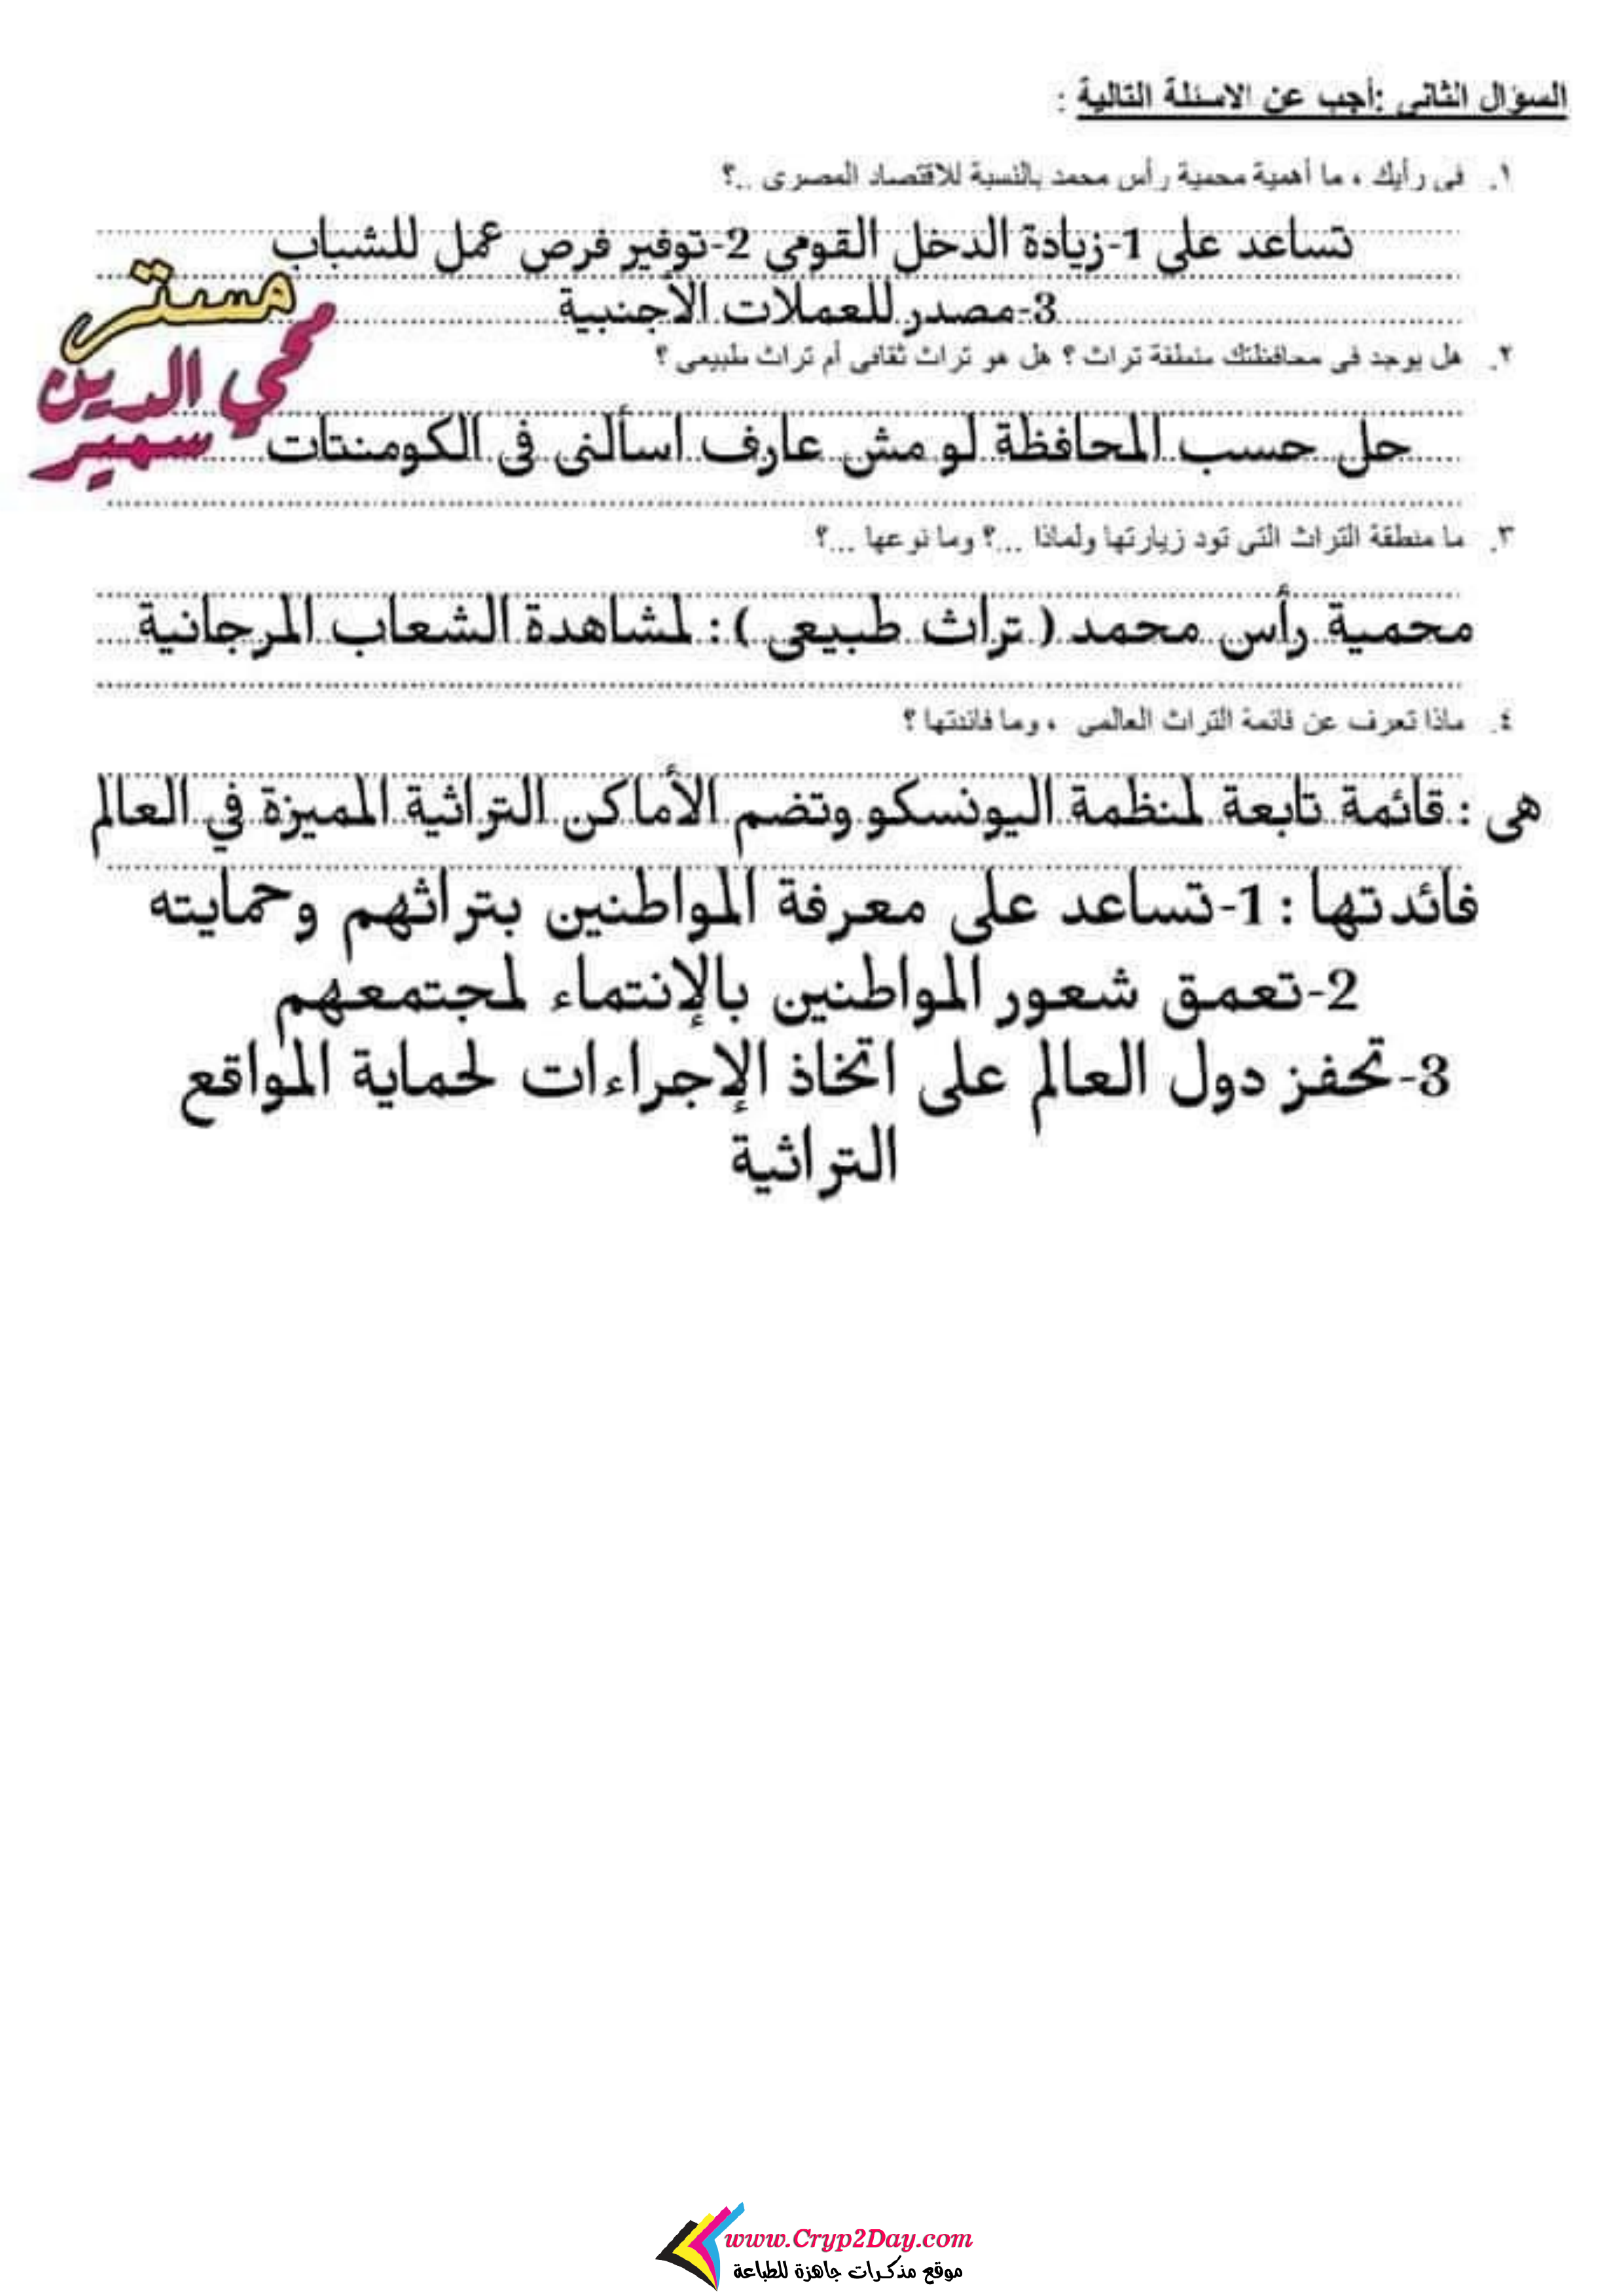 السؤال الثانى :أجب عن الاسئلة التالية :
١. فى رأيك ، ما أهمية محمية رأس محمد بالنسبة للاقتصاد المصرى ..؟
تساعد على 1-زيادة الدخل القومى 2-توفير فرص عمل للشباب
3-مصدر للعملات الأجنبية
مستر
محي الدين
سهير
٢. هل يوجد فى محافظتك منطقة تراث ؟ هل هو تراث ثقافى أم تراث طبيعى ؟
حل حسب المحافظة لو مش عارف اسألنى فى الكومنتات
٣. ما منطقة التراث التى تود زيارتها ولماذا ...؟ وما نوعها ...؟
محمية رأس محمد ( تراث طبيعى ) : لمشاهدة الشعاب المرجانية
٤. ماذا تعرف عن قائمة التراث العالمى ، وما فائدتها ؟
هى : قائمة تابعة لمنظمة اليونسكو وتضم الأماكن التراثية المميزة في العالم
فائدتها : 1-تساعد على معرفة المواطنين بتراثهم وحمايته
2-تعمق شعور المواطنين بالإنتماء لمجتمعهم
3-تحفز دول العالم على اتخاذ الإجراءات لحماية المواقع
التراثية
www.Cryp2Day.com
موقع مذكرات جاهزة للطباعة